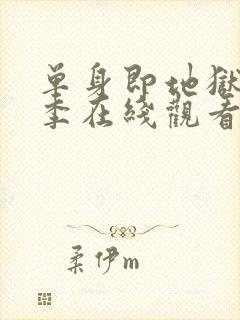 單身即地獄
季在綫觀看
柔伊m